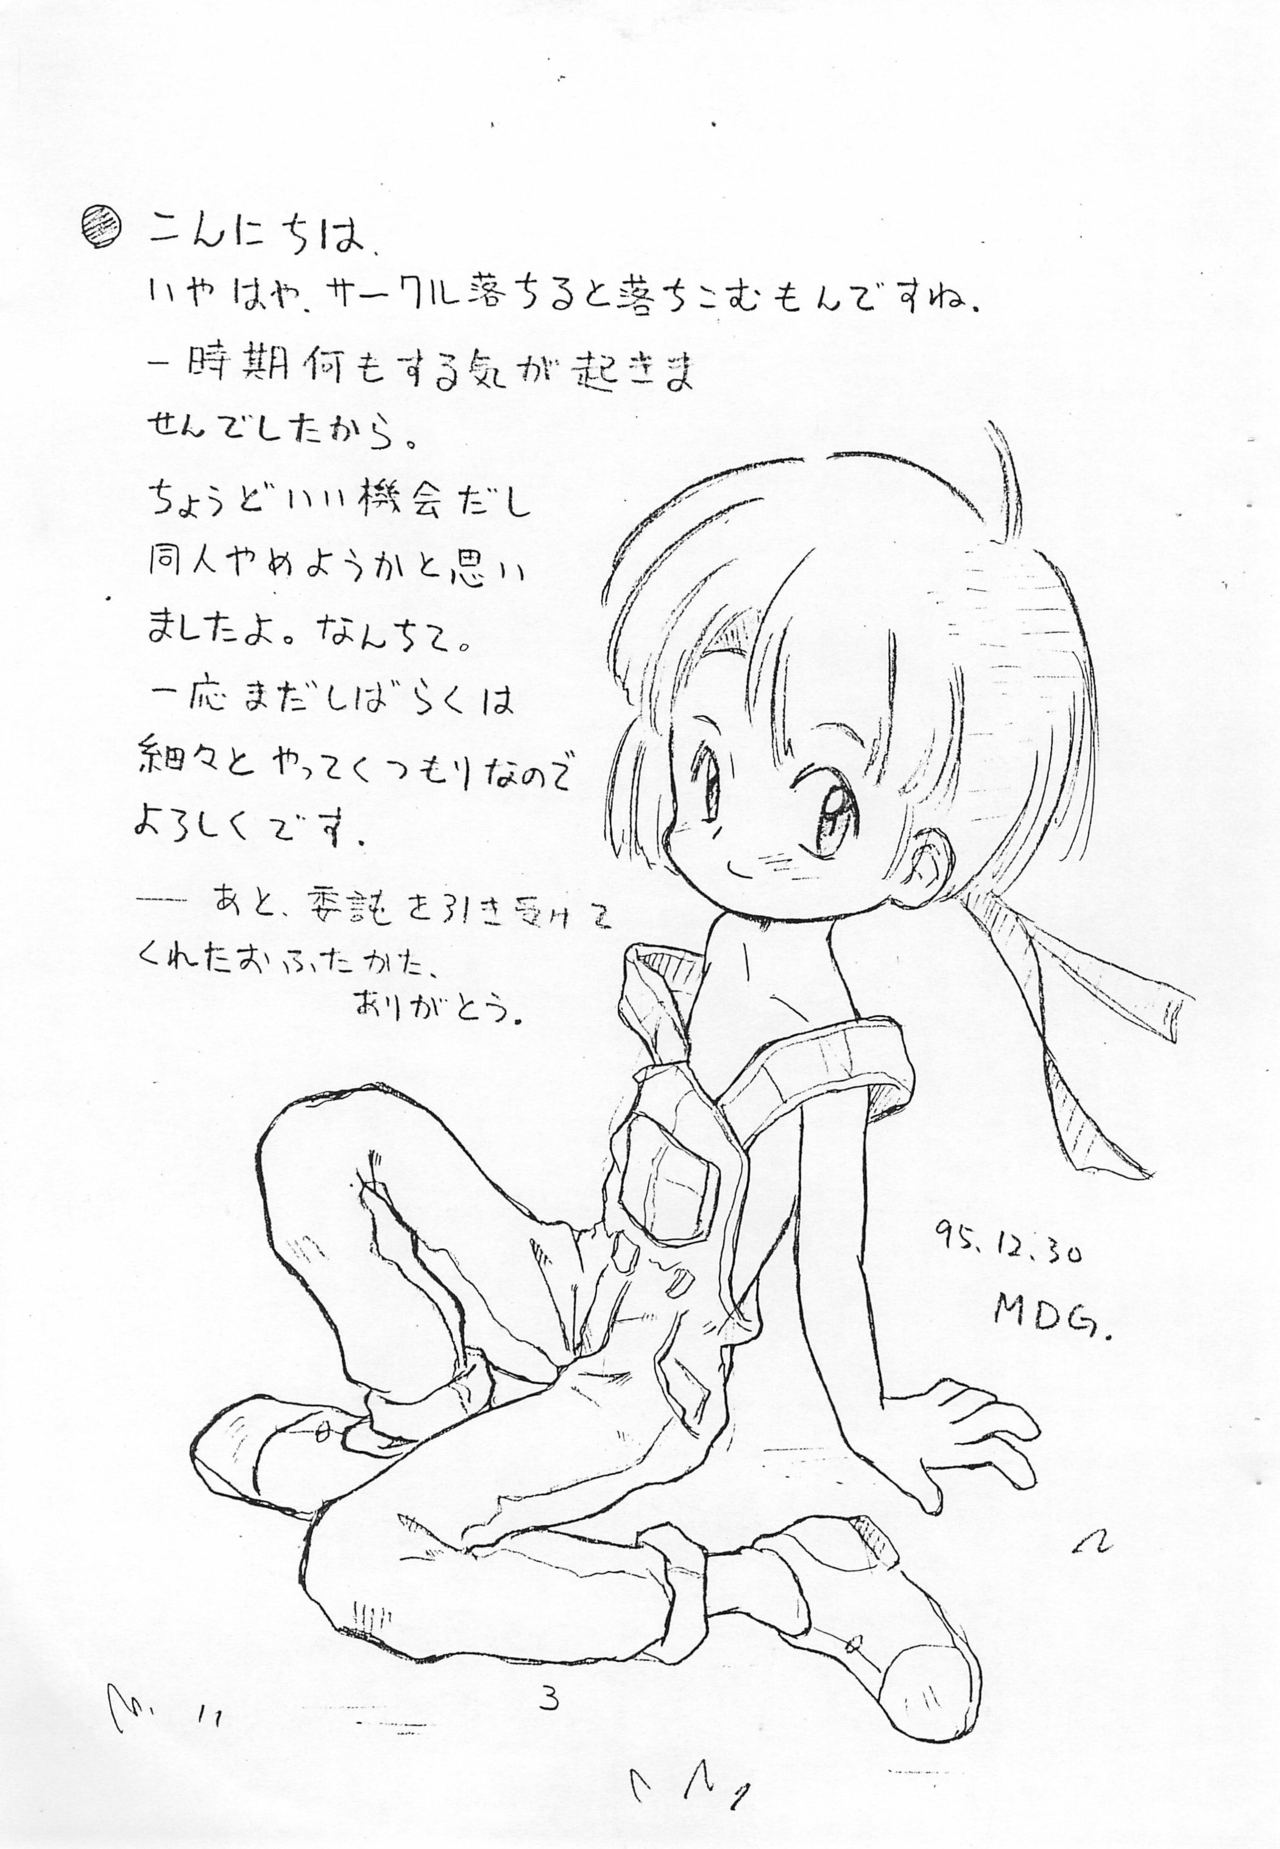 こんにちは、
いやはや、サークル落ちると落ちこむもんですね。
一時期何もする気が起きま
せんでしたから。
ちょうどいい機会だし
同人やめようかと思い
ましたよ。なんちて。
一応まだしばらくは
細々とやってくつもりなので
よろしくです。
── あと、委託を引き受けて
くれたおふたかた、
ありがとう。
95.12.30
MDG.
3